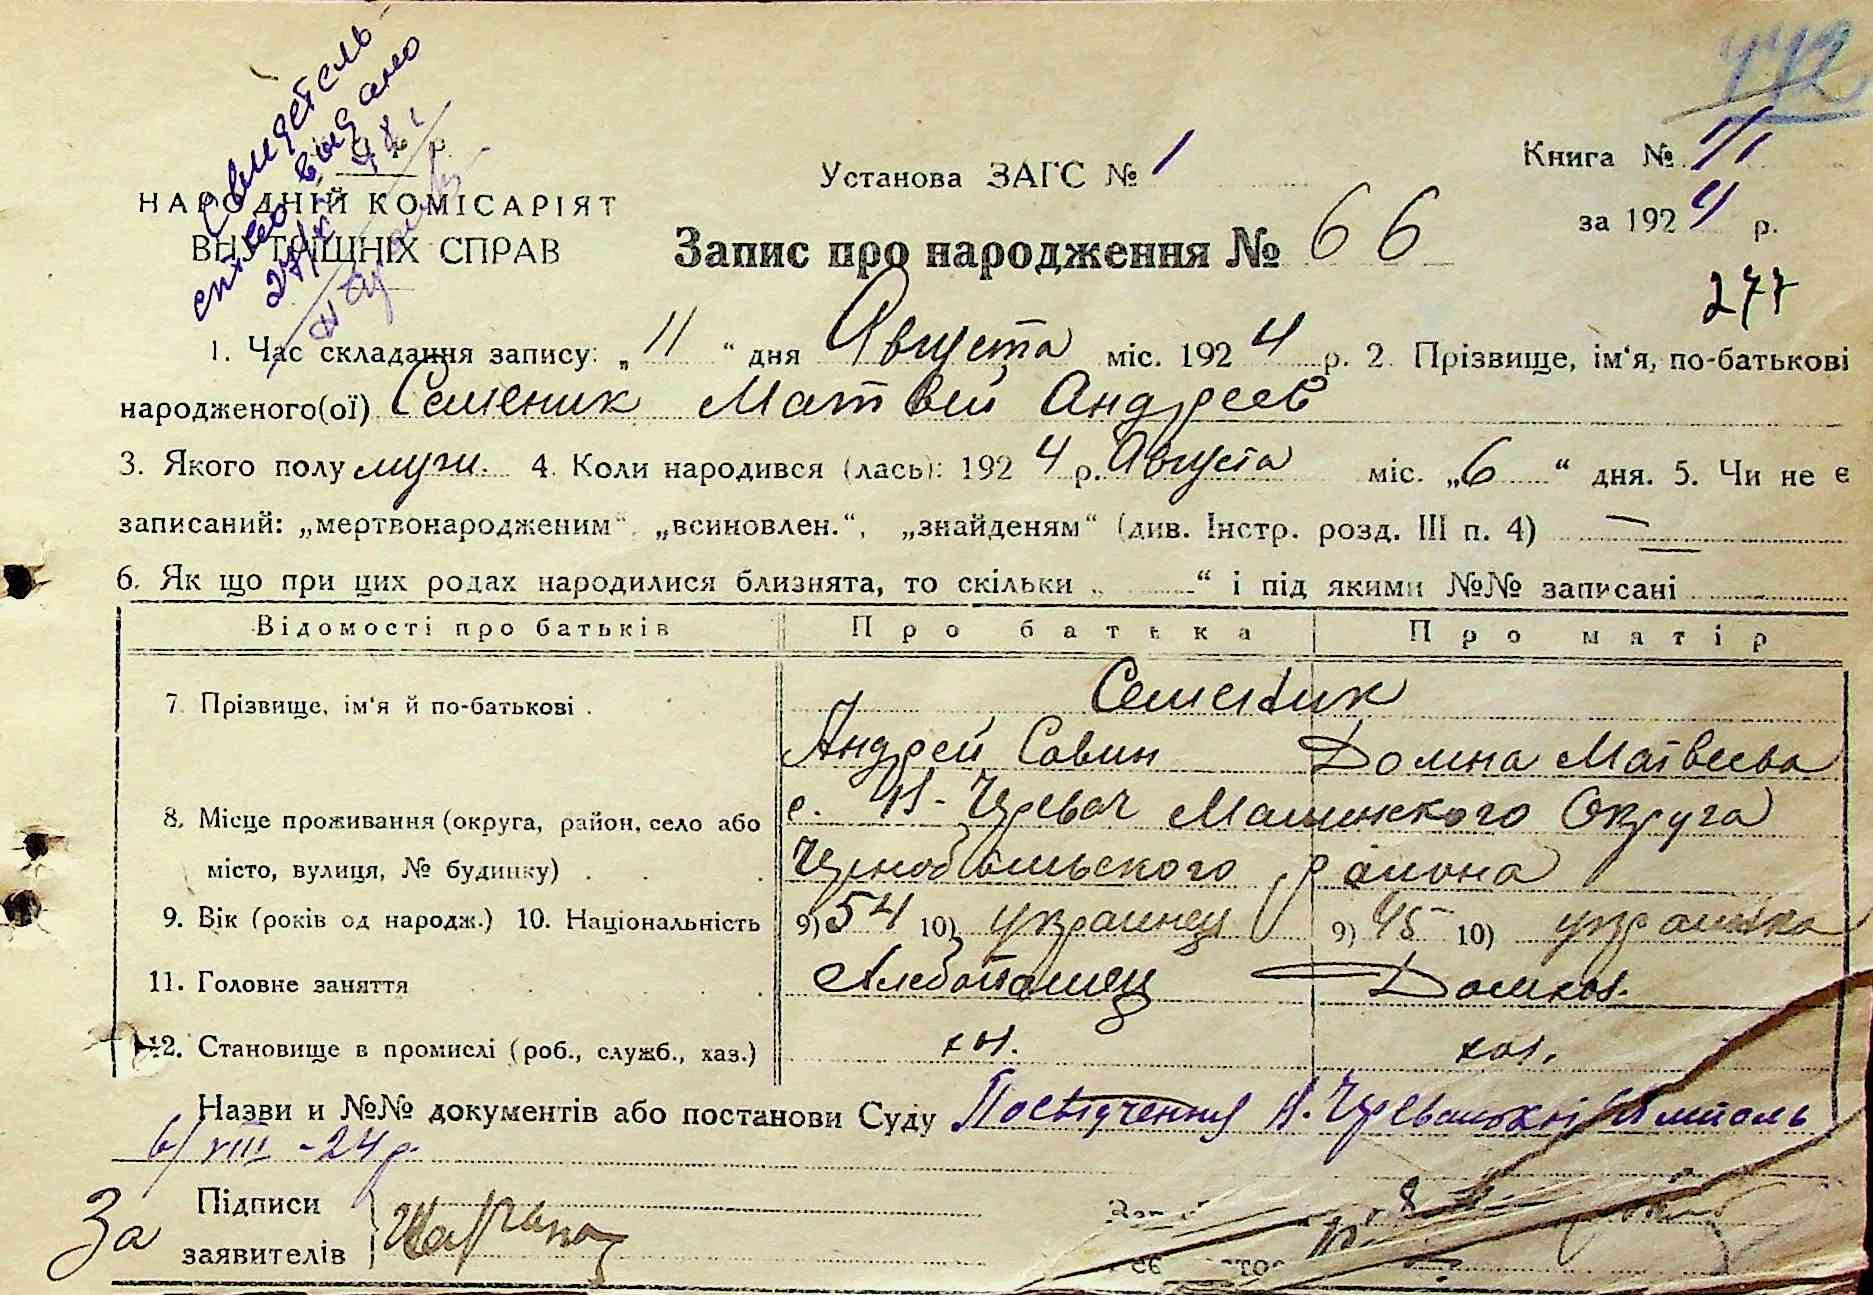 442
Свидетель
ство выдано
НАРОДНІЙ КОМІСАРІЯТ
ВНУТРІШНІХ СПРАВ
Установа ЗАГС № 1
Книга №
за 1924 р.
Запис про народження № 66
277
1. Час складання запису: „11“ дня Августа міс. 1924 р. 2. Прізвище, ім‘я, по-батькові
народженого(ої) Семеник Матвей Андреев
3. Якого полу муж. 4. Коли народився (лась): 1924 р. Августа міс. „6“ дня. 5. Чи не є
записаний: „мертвонародженим“, „всиновлен.“, „знайденям“ (див. Інстр. розд. III п. 4) —
6. Як що при цих родах народилися близнята, то скільки „ “ і під якими №№ записані
Відомості про батьків Про батька Про матір
7. Прізвище, ім‘я й по-батькові . Семеник
Андрей Савин Домна Матвеева
8. Місце проживання (округа, район, село або с. Н-Чревач Малинского Округа
місто, вулиця, № будинку) . . . Чернобыльского района
9. Вік (років од народж.) 10. Національність 9) 54 10) украинец 9) 45 10) украинка
11. Головне заняття . . . . Хлебопашец Домхоз.
12. Становище в промислі (роб., служб., хаз.) хоз. хоз.
Назви и №№ документів або постанови Суду Посвідчення Н. Чревачской
6/VIII -24 р.
За Підписи
заявителів